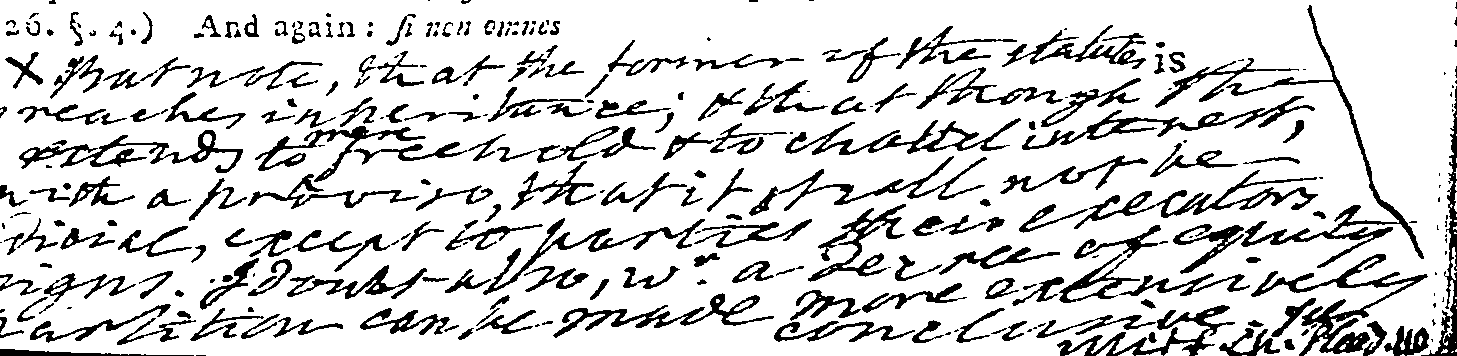 26. §. 4.) And again: ſi non omnes
X But note, that the former of the statutes is
reaches inheritance; & that though the
extends to mere freehold & to chattel interests,
with a proviso, that it shall not be
dicial, except to parties their executors
signs. I doubt also, wr. a Decree of equity
partition can be made more extensively
conclusive.
Mitf. Ch. Plead. 110